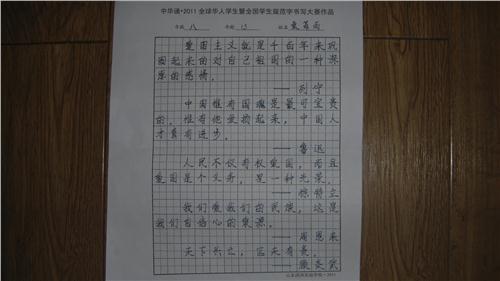 中华诵·2011全球华人学生暨全国学生规范字书写大赛作品
年级 八 年龄 13 姓名
爱国主义就是千百年来巩
固起来的对自己祖国的一种深
厚的感情。
——列宁
中国惟有国魂是最可宝贵
的,惟有他发扬起来,中国人
才有真进步。
——鲁迅
人民不仅有权爱国,而且
爱国是个义务,是一种光荣。
——徐特立
我们爱我们的民族,这是
我们自信心的泉源。
——周恩来
天下兴亡,匹夫有责。
——顾炎武